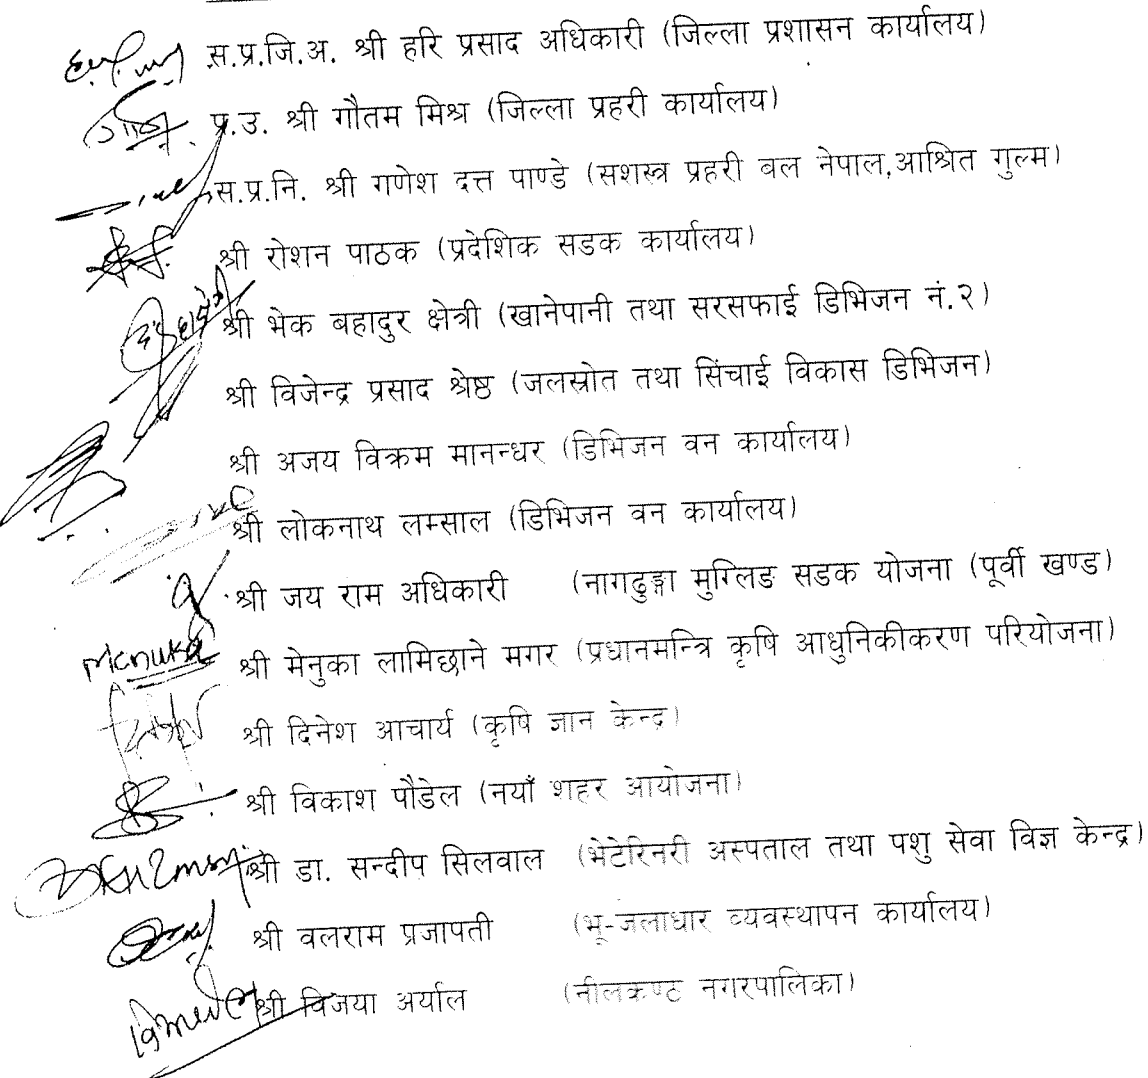 स.प्र.जि.अ. श्री हरि प्रसाद अधिकारी (जिल्ला प्रशासन कार्यालय)
प्र.उ. श्री गौतम मिश्र (जिल्ला प्रहरी कार्यालय)
स.प्र.नि. श्री गणेश दत्त पाण्डे (सशस्त्र प्रहरी बल नेपाल,आश्रित गुल्म)
श्री रोशन पाठक (प्रदेशिक सडक कार्यालय)
श्री भेक बहादुर क्षेत्री (खानेपानी तथा सरसफाई डिभिजन नं.२)
श्री विजेन्द्र प्रसाद श्रेष्ठ (जलस्रोत तथा सिंचाई विकास डिभिजन)
श्री अजय विक्रम मानन्धर (डिभिजन वन कार्यालय)
श्री लोकनाथ लम्साल (डिभिजन वन कार्यालय)
श्री जय राम अधिकारी (नागढुङ्गा मुग्लिङ सडक योजना (पूर्वी खण्ड)
Menuka श्री मेनुका लामिछाने मगर (प्रधानमन्त्रि कृषि आधुनिकीकरण परियोजना)
श्री दिनेश आचार्य (कृषि ज्ञान केन्द्र)
श्री विकाश पौडेल (नयाँ शहर आयोजना)
श्री डा. सन्दीप सिलवाल (भेटेरिनरी अस्पताल तथा पशु सेवा विज्ञ केन्द्र)
श्री वलराम प्रजापती (भू-जलाधार व्यवस्थापन कार्यालय)
श्री विजया अर्याल (नीलकण्ठ नगरपालिका)